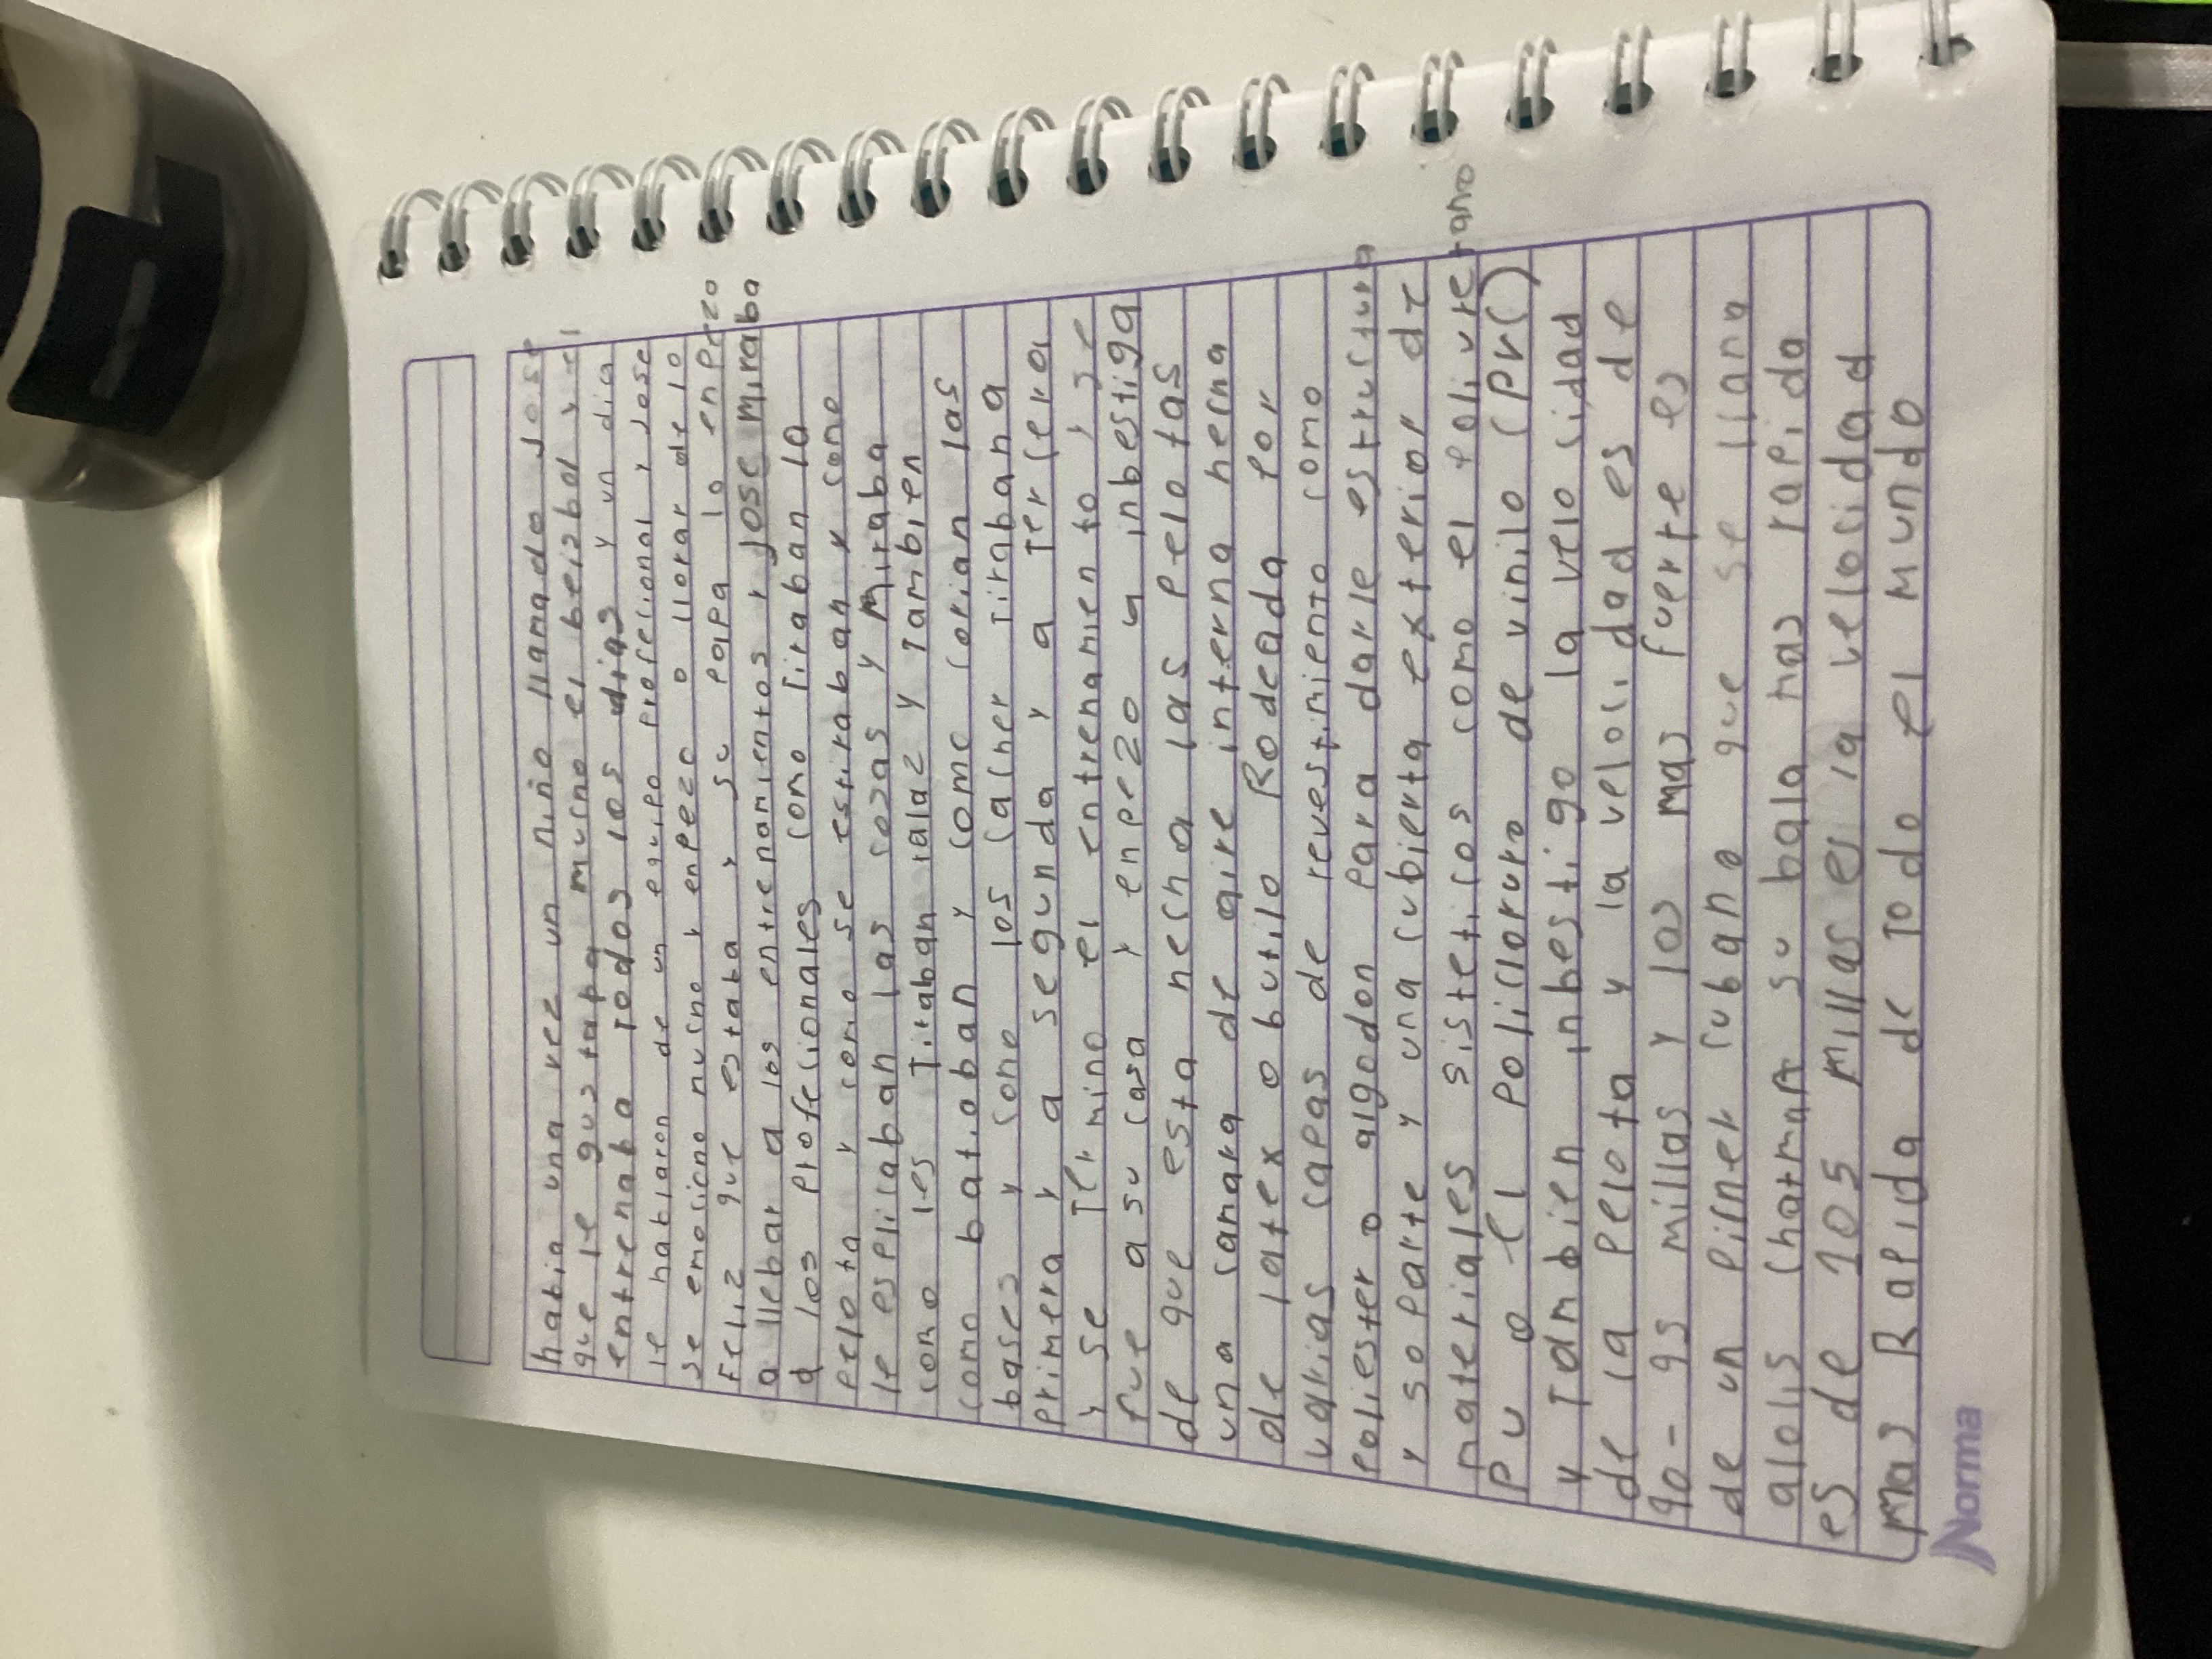 habia una vez un niño llamado Jose
que le gustaba mucho el beizbol y el
entrenaba todos los dias y un dia
le hablaron de un equipo profecional y Jose
se emociono mucho y enpezo a llorar de lo
Feliz que estaba y su papa lo enpezo
a llebar a los entrenamientos y Jose miraba
a los profecionales como tiraban la
pelota y como se estiraban y como
le esplicaban las cozas y miraba
como les Tiraban ralaz y Tambien
como batiaban y como corian las
bases y como los cacher Tirabana
primera y a segunda y a Tercera
y se Termino el entrenamiento y se
fue a su casa y enpezo a inbestiga
de que esta hecha las pelotas
una camara de aire interna hecha
de latex o butilo Rodeada por
varias capas de revestimiento como
poliester o algodon para darle estructura
y soparte y una cubierta exterior de
materiales sisteticos como el poliuretano
PU o el policloruro de vinilo (PVC)
y Tambien inbestigo la velosidad
de la pelota y la velocidad es de
90-95 millas y las mas fuerte es
de un picher cubano que se llama
alolis chatman su bala mas rapida
es de 105 millas es la velosidad
mas Rapida de Todo el mundo
Norma